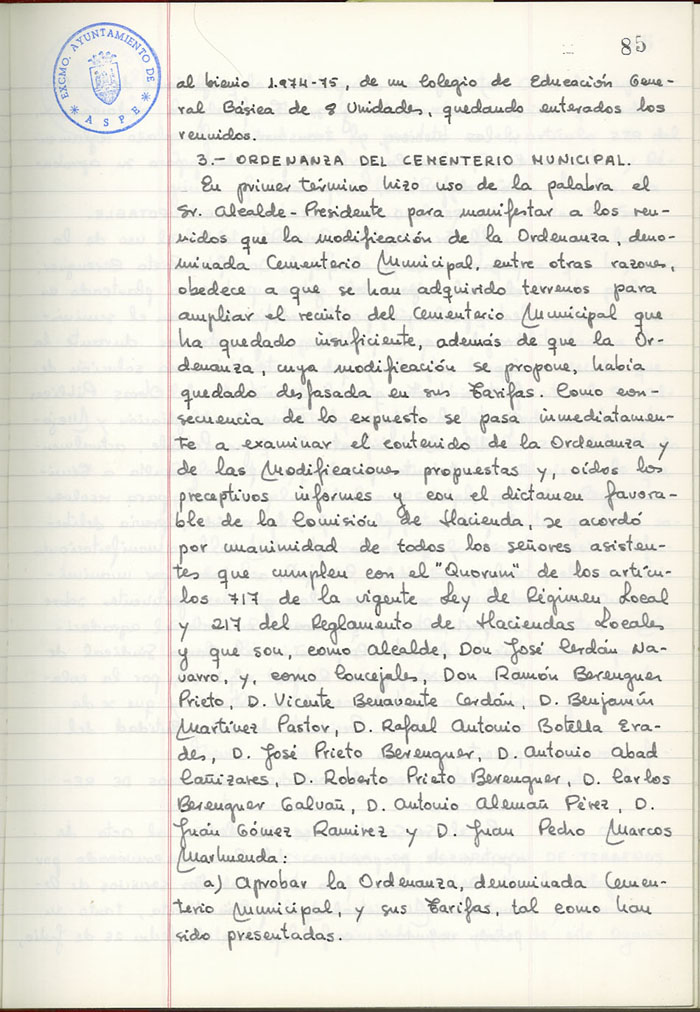 85
EXCMO. AYUNTAMIENTO DE
* ASPE *
al bienio 1.974-75, de un Colegio de Educación Gene-
ral Básica de 8 Unidades, quedando enterados los
reunidos.
3.- ORDENANZA DEL CEMENTERIO MUNICIPAL.
En primer término hizo uso de la palabra el
Sr. Alcalde-Presidente para manifestar a los reu-
nidos que la modificación de la Ordenanza, deno-
minada Cementerio Municipal, entre otras razones,
obedece a que se han adquirido terrenos para
ampliar el recinto del Cementerio Municipal que
ha quedado insuficiente, además de que la Or-
denanza, cuya modificación se propone, había
quedado desfasada en sus Tarifas. Como con-
secuencia de lo expuesto se pasa inmediatamen-
te a examinar el contenido de la Ordenanza y
de las Modificaciones propuestas y, oídos los
preceptivos informes y con el dictamen favora-
ble de la Comisión de Hacienda, se acordó
por unanimidad de todos los señores asisten-
tes que cumplen con el "Quorum" de los artícu-
los 717 de la vigente Ley de Régimen Local
y 217 del Reglamento de Haciendas Locales
y que son, como Alcalde, Don José Cerdán Na-
varro, y, como Concejales, Don Ramón Berenguer
Prieto, D. Vicente Benavente Cerdán, D. Benjamín
Martínez Pastor, D. Rafael Antonio Botella Era-
des, D. José Prieto Berenguer, D. Antonio Abad
Cañizares, D. Roberto Prieto Berenguer, D. Carlos
Berenguer Galvañ, D. Antonio Alemañ Pérez, D.
Juan Gómez Ramirez y D. Juan Pedro Marcos
Marhuenda:
a) Aprobar la Ordenanza, denominada Cemen-
terio Municipal, y sus Tarifas, tal como han
sido presentadas.